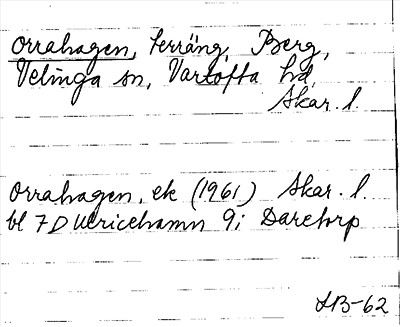 Orrahagen, terräng, Berg,
Velinga sn, Vartofta hd,
Skar. l.
Orrahagen, ek (1961) Skar. l.
bl 7D Ulricehamn 9i Daretorp
LB-62